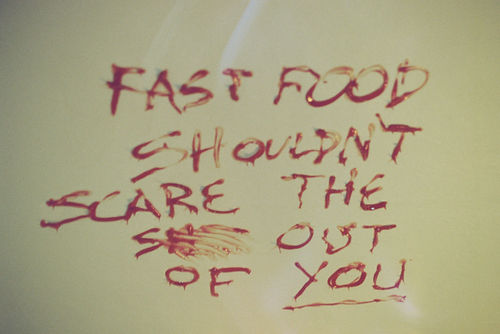 FAST FOOD
SHOULDN'T
SCARE THE
OUT
OF YOU